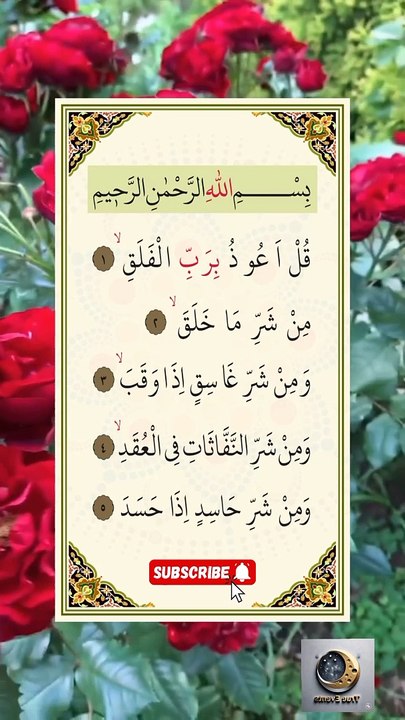 بِسْمِ اللهِ الرَّحْمٰنِ الرَّحِيمِ
قُلْ اَعُوذُ بِرَبِّ الْفَلَقِ ۙ ١
مِنْ شَرِّ مَا خَلَقَ ۙ ٢
وَمِنْ شَرِّ غَاسِقٍ اِذَا وَقَبَ ۙ ٣
وَمِنْ شَرِّ النَّفَّاثَاتِ فِي الْعُقَدِ ۙ ٤
وَمِنْ شَرِّ حَاسِدٍ اِذَا حَسَدَ ٥
SUBSCRIBE